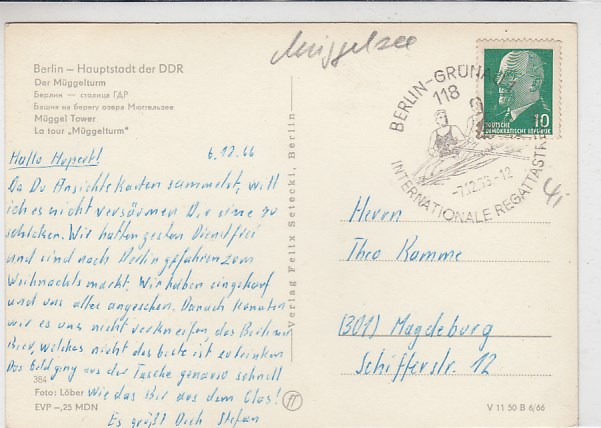 Müggelsee
Berlin – Hauptstadt der DDR
Der Müggelturm
Берлин — столица ГДР
Башня на берегу озера Мюггельзее
Müggel Tower
La tour „Müggelturm“
Hallo Hupert! 6.12.66
Da Du Ansichtskarten sammelst, will
ich es nicht versäumen Dir eine zu
schicken. Wir hatten gestern Dienstfrei
und sind nach Berlin gefahren zum
Weihnachtsmarkt. Wir haben eingekauft
und uns alles angesehen. Danach konnten
wir es uns nicht verkneifen das Berliner
Bier, welches nicht das beste ist zu trinken
Das Geld ging aus der Tasche genauso schnell
wie das Bier aus dem Glas!
Es grüßt Dich Stefan
384
Foto: Löber
EVP –,25 MDN
Verlag Felix Setecki, Berlin
BERLIN-GRÜNAU
118
INTERNATIONALE REGATTASTR
-7.12.66-12
10
DEUTSCHE
DEMOKRATISCHE REPUBLIK
Herrn
Theo Kamme
(301) Magdeburg
Schifferstr. 12
V 11 50 B 6/66